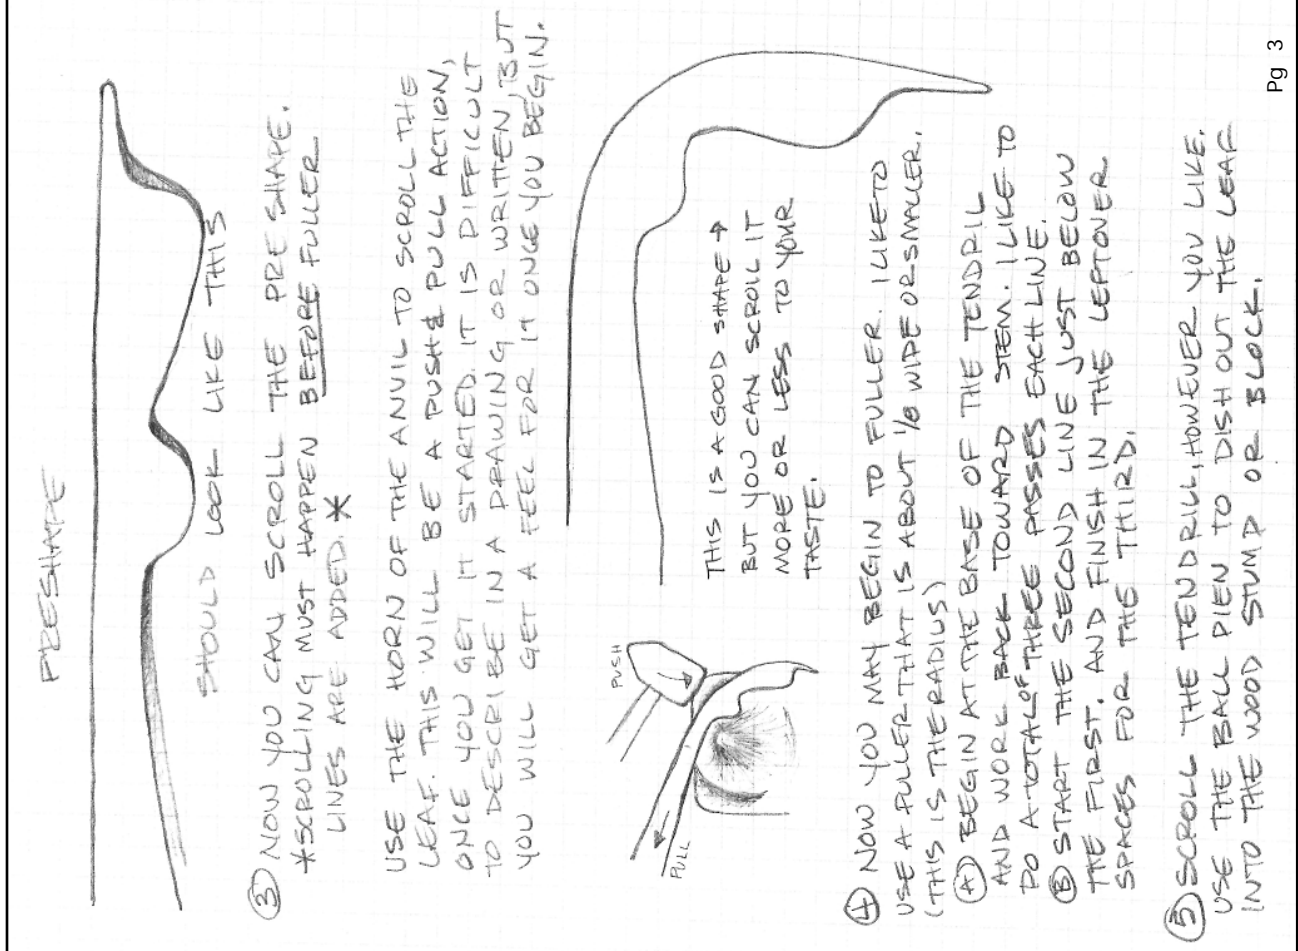 Pg 3
PRESHAPE
SHOULD LOOK LIKE THIS
③ NOW YOU CAN SCROLL THE PRE SHAPE.
*SCROLLING MUST HAPPEN BEFORE FULLER
LINES ARE ADDED.*
USE THE HORN OF THE ANVIL TO SCROLL THE
LEAF. THIS WILL BE A PUSH & PULL ACTION,
ONCE YOU GET IT STARTED. IT IS DIFFICULT
TO DESCRIBE IN A DRAWING OR WRITTEN, BUT
YOU WILL GET A FEEL FOR IT ONCE YOU BEGIN.
PUSH
PULL
THIS IS A GOOD SHAPE →
BUT YOU CAN SCROLL IT
MORE OR LESS TO YOUR
TASTE.
④ NOW YOU MAY BEGIN TO FULLER. I LIKE TO
USE A FULLER THAT IS ABOUT 1/8 WIDE OR SMALLER.
(THIS IS THE RADIUS)
Ⓐ BEGIN AT THE BASE OF THE TENDRIL
AND WORK BACK TOWARD STEM. I LIKE TO
DO A TOTAL OF THREE PASSES EACH LINE.
Ⓑ START THE SECOND LINE JUST BELOW
THE FIRST. AND FINISH IN THE LEFTOVER
SPACES FOR THE THIRD.
⑤ SCROLL THE TENDRILL, HOWEVER YOU LIKE.
USE THE BALL PIEN TO DISH OUT THE LEAF
INTO THE WOOD STUMP OR BLOCK.